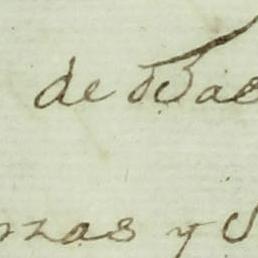 de Bae
nzas y S